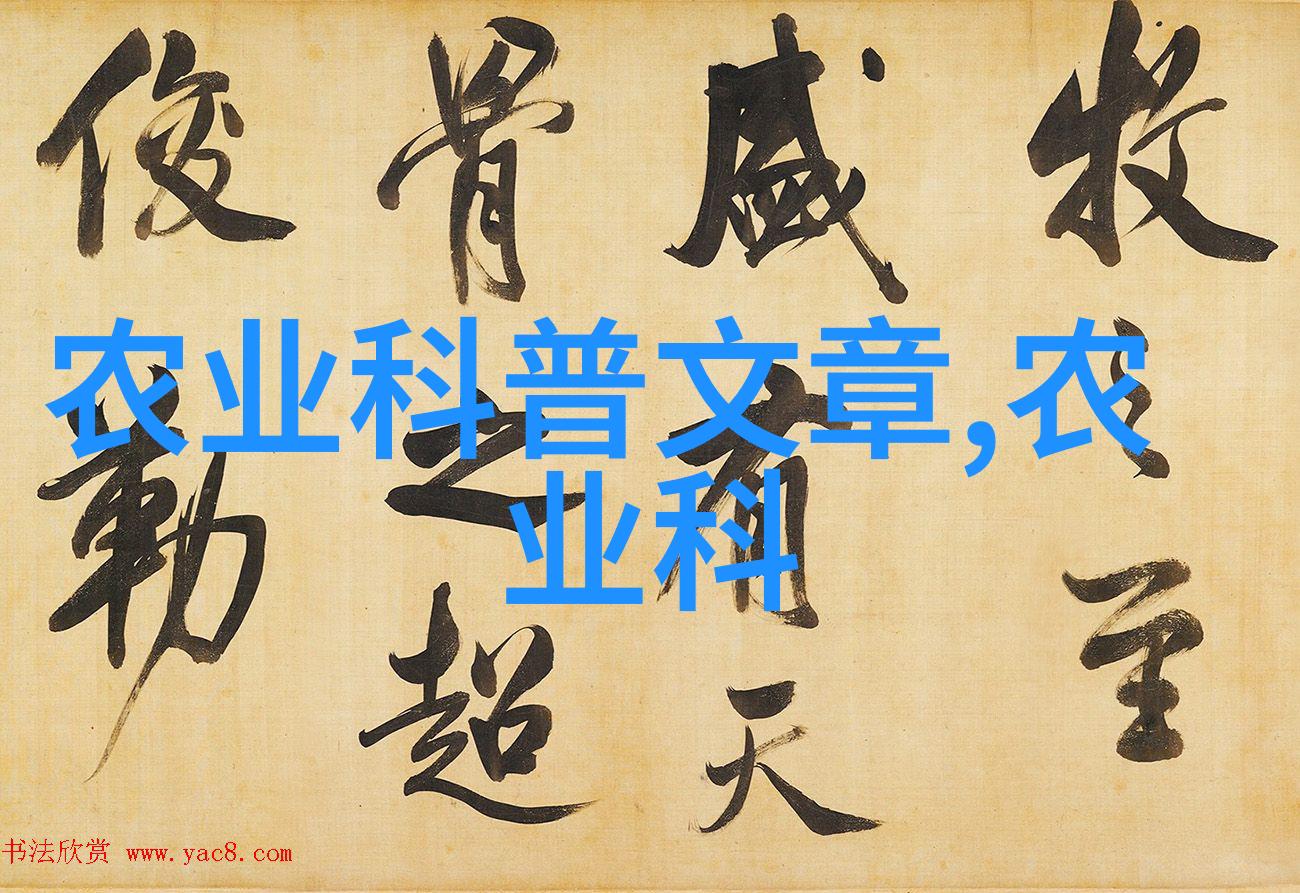 牧之至
盛有天
骨之超
俊勒
农业科普文章,农
业科
书法欣赏 www.yac8.com